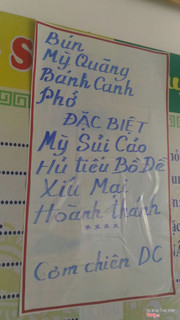 Bún
Mỳ Quảng
Bánh Canh
Phở
ĐẶC BIỆT
Mỳ Sủi Cảo
Hủ tiếu Bồ Đề
Xíu Mại
Hoành Thánh
****
Cơm chiên DC